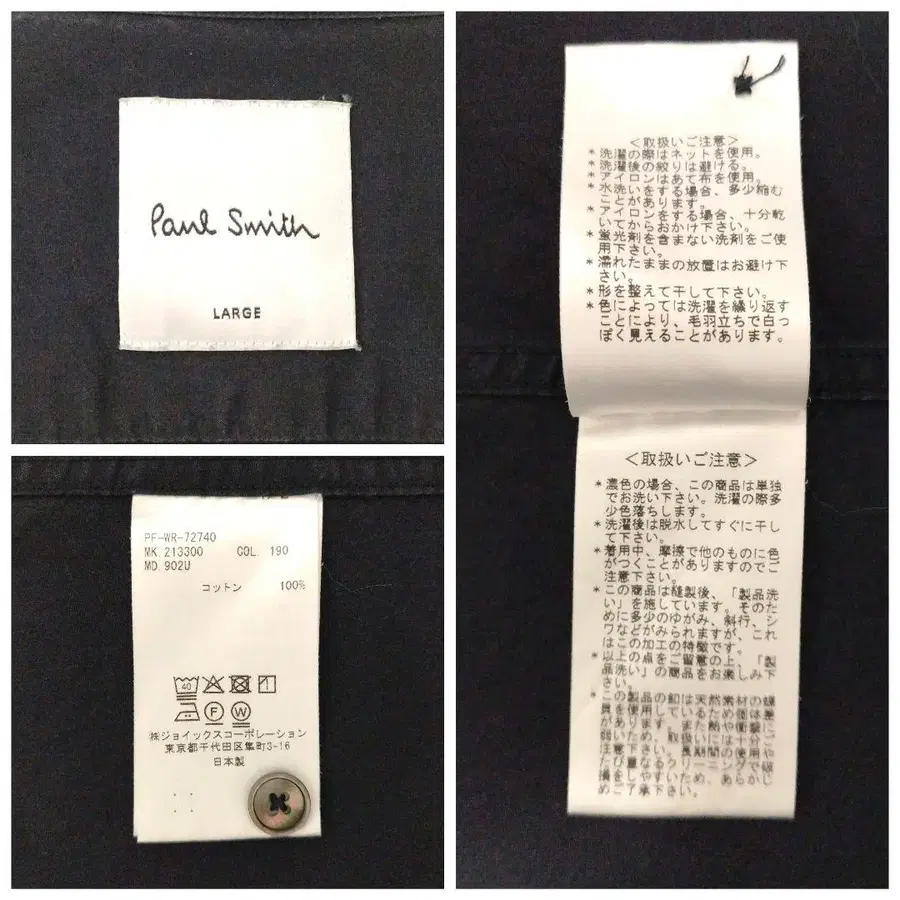 Paul Smith
LARGE
PF-WR-72740
MK.213300 COL. 190
MD.902U
コットン 100%
40
F
W
㈱ジョイックスコーポレーション
東京都千代田区隼町3-16
日本製
<取扱いご注意>
*洗濯の際はネットを使用。
*洗濯後の絞りは避ける。
*アイロンはあて布を使用。
*水洗いをする場合、多少縮む
ことがあります。
*アイロンをする場合、十分乾
いてからおかけ下さい。
*蛍光剤を含まない洗剤をご使
用下さい。
*濡れたままの放置はお避け下
さい。
*形を整えて干して下さい。
*色によっては洗濯を繰り返す
ことにより、毛羽立ちで白っ
ぽく見えることがあります。
<取扱いご注意>
*濃色の場合、この商品は単独
でお洗い下さい。洗濯の際多
少色落ちします。
*洗濯後は脱水してすぐに干し
て下さい。
*着用中、摩擦で他のものに色
がつくことがありますのでご
注意下さい。
*この商品は縫製後、「製品洗
い」を施しています。そのた
めに多少のゆがみ、斜行、シ
ワなどがみられますが、これ
はこの加工の特徴です。
*以上の点をご留意の上、「製
品洗い」の商品をお楽しみ下
さい。
*この製品の釦は天然素材の蝶
貝を使用しているため個体差
があります。また熱や衝撃に
弱いため、取扱いには十分ご
注意下さい。長期間の使用や
たび重なるクリーニングで破
損をしやすいため、あらかじ
めご了承下さい。